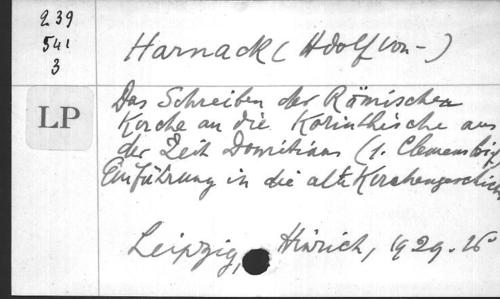 239
541
3
LP
Harnack (Adolf von -)
Das Schreiben der Römischen
Kirche an die Korinthische aus
der Zeit Domitians (1. Clemensbrief
Einführung in die alte Kirchengeschich
Leipzig, Hinrich, 1929. in